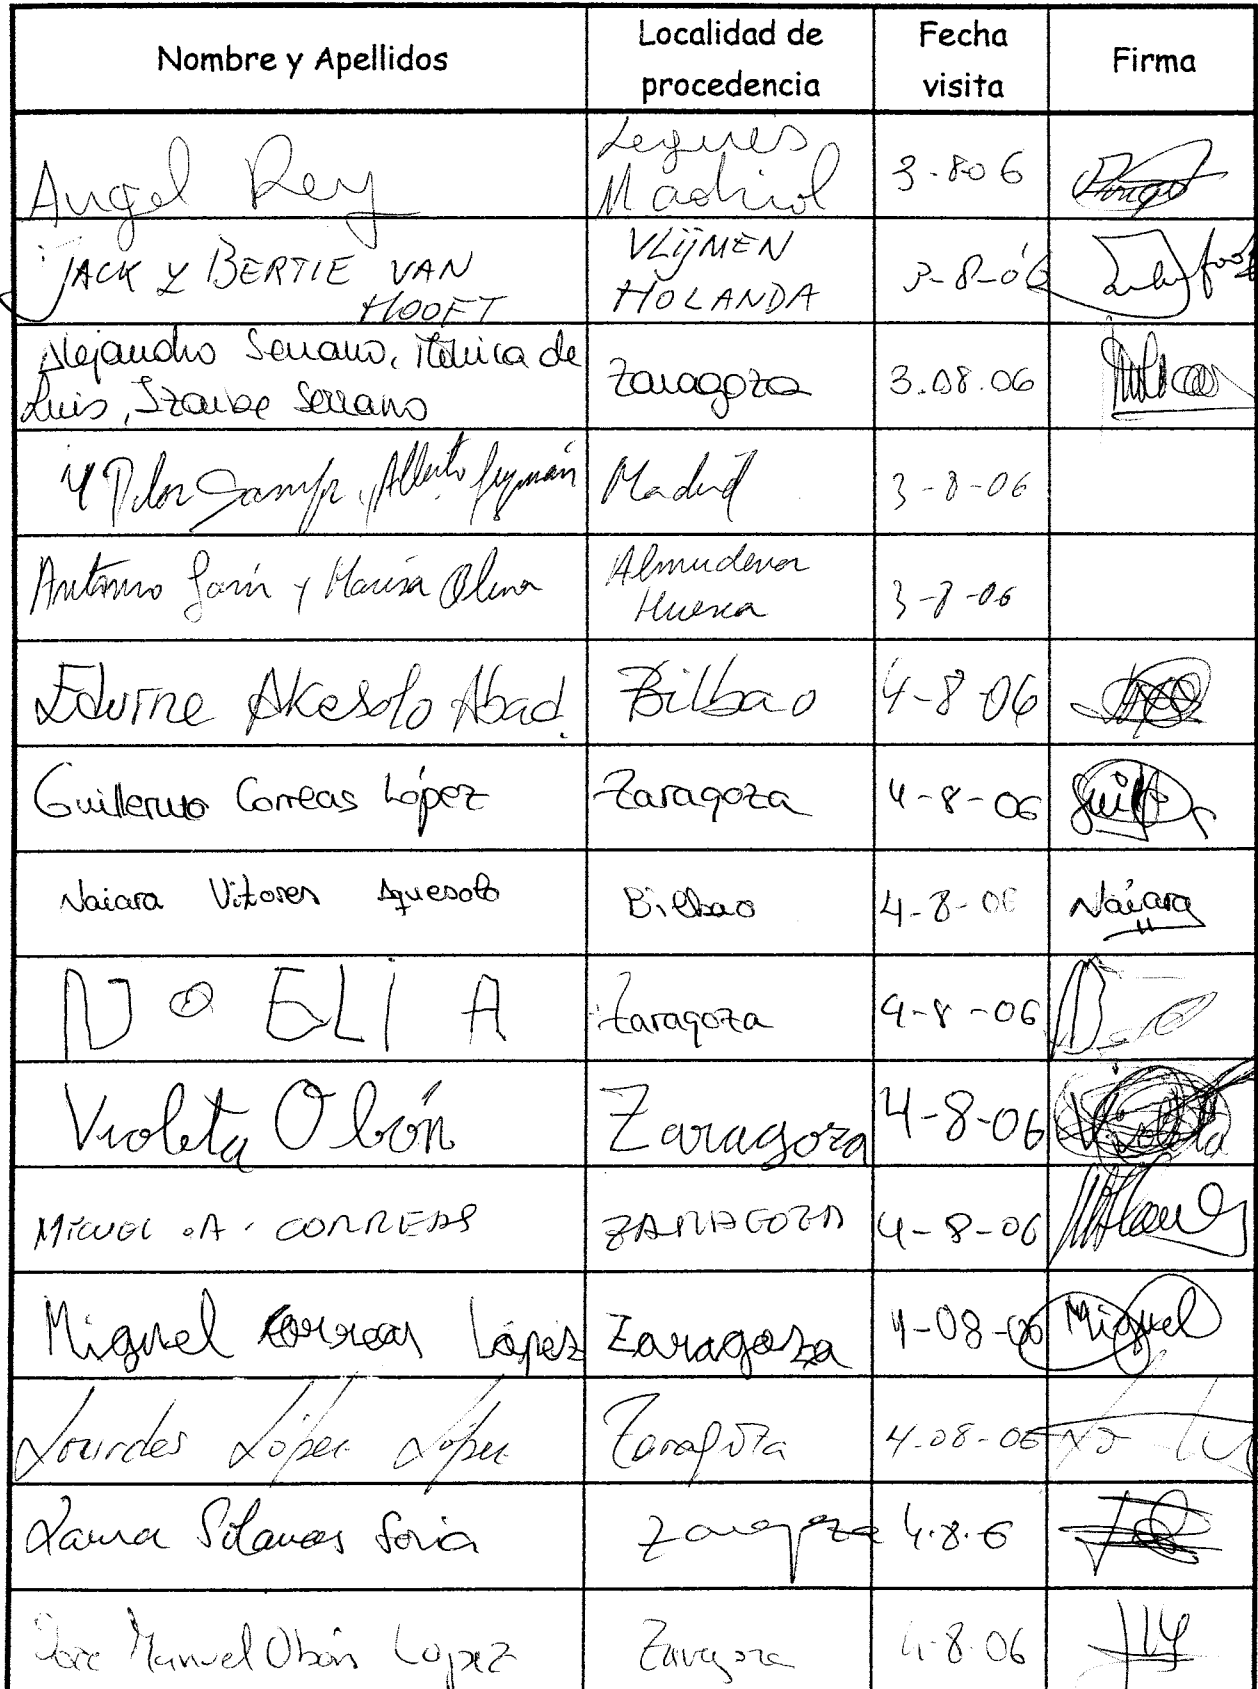 Nombre y Apellidos
Localidad de
procedencia
Fecha
visita
Firma
Angel Rey
Leganés
Madrid
3-8-06
JACK Y BERTIE VAN
HOOFT
VLIJMEN
HOLANDA
3-8-06
Alejandro Serrano, Mónica de
Luis, Izarbe Serrano
Zaragoza
3.08.06
Alberto Guzmán
Madrid
3-8-06
Antonio y Marisa
Almudévar
Huesca
3-8-06
Edurne Akesolo Abad.
Bilbao
4-8-06
Guillermo Correas López
Zaragoza
4-8-06
Naiara Vitores Aquesolo
Bilbao
4-8-06
Naiara
NOELIA
Zaragoza
4-8-06
Violeta Obón
Zaragoza
4-8-06
Violeta
MIGUEL A. CORREAS
ZARAGOZA
4-8-06
Miguel Correas López
Zaragoza
4-08-06
Miguel
Lourdes López López
Zaragoza
4.08-06
Laura Soria
Zaragoza
4.8.6
Jose Manuel Obón Lopez
Zaragoza
4-8-06